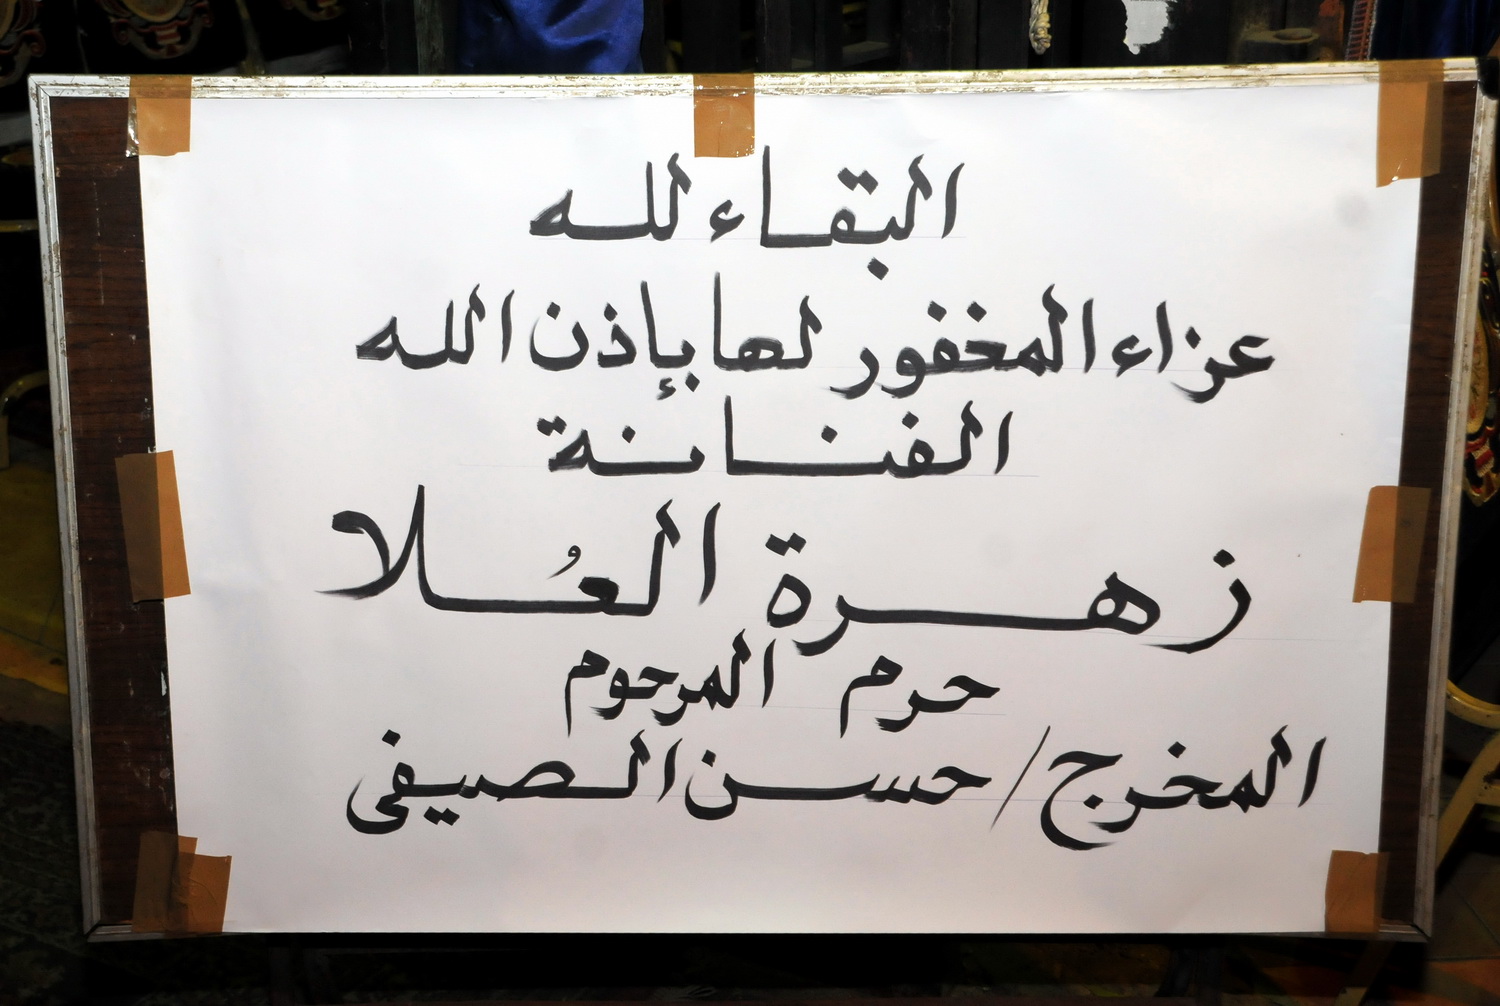 البقاء لله
عزاء المغفور لها بإذن الله
الفنانة
زهرة العُلا
حرم المرحوم
المخرج / حسن الصيفى